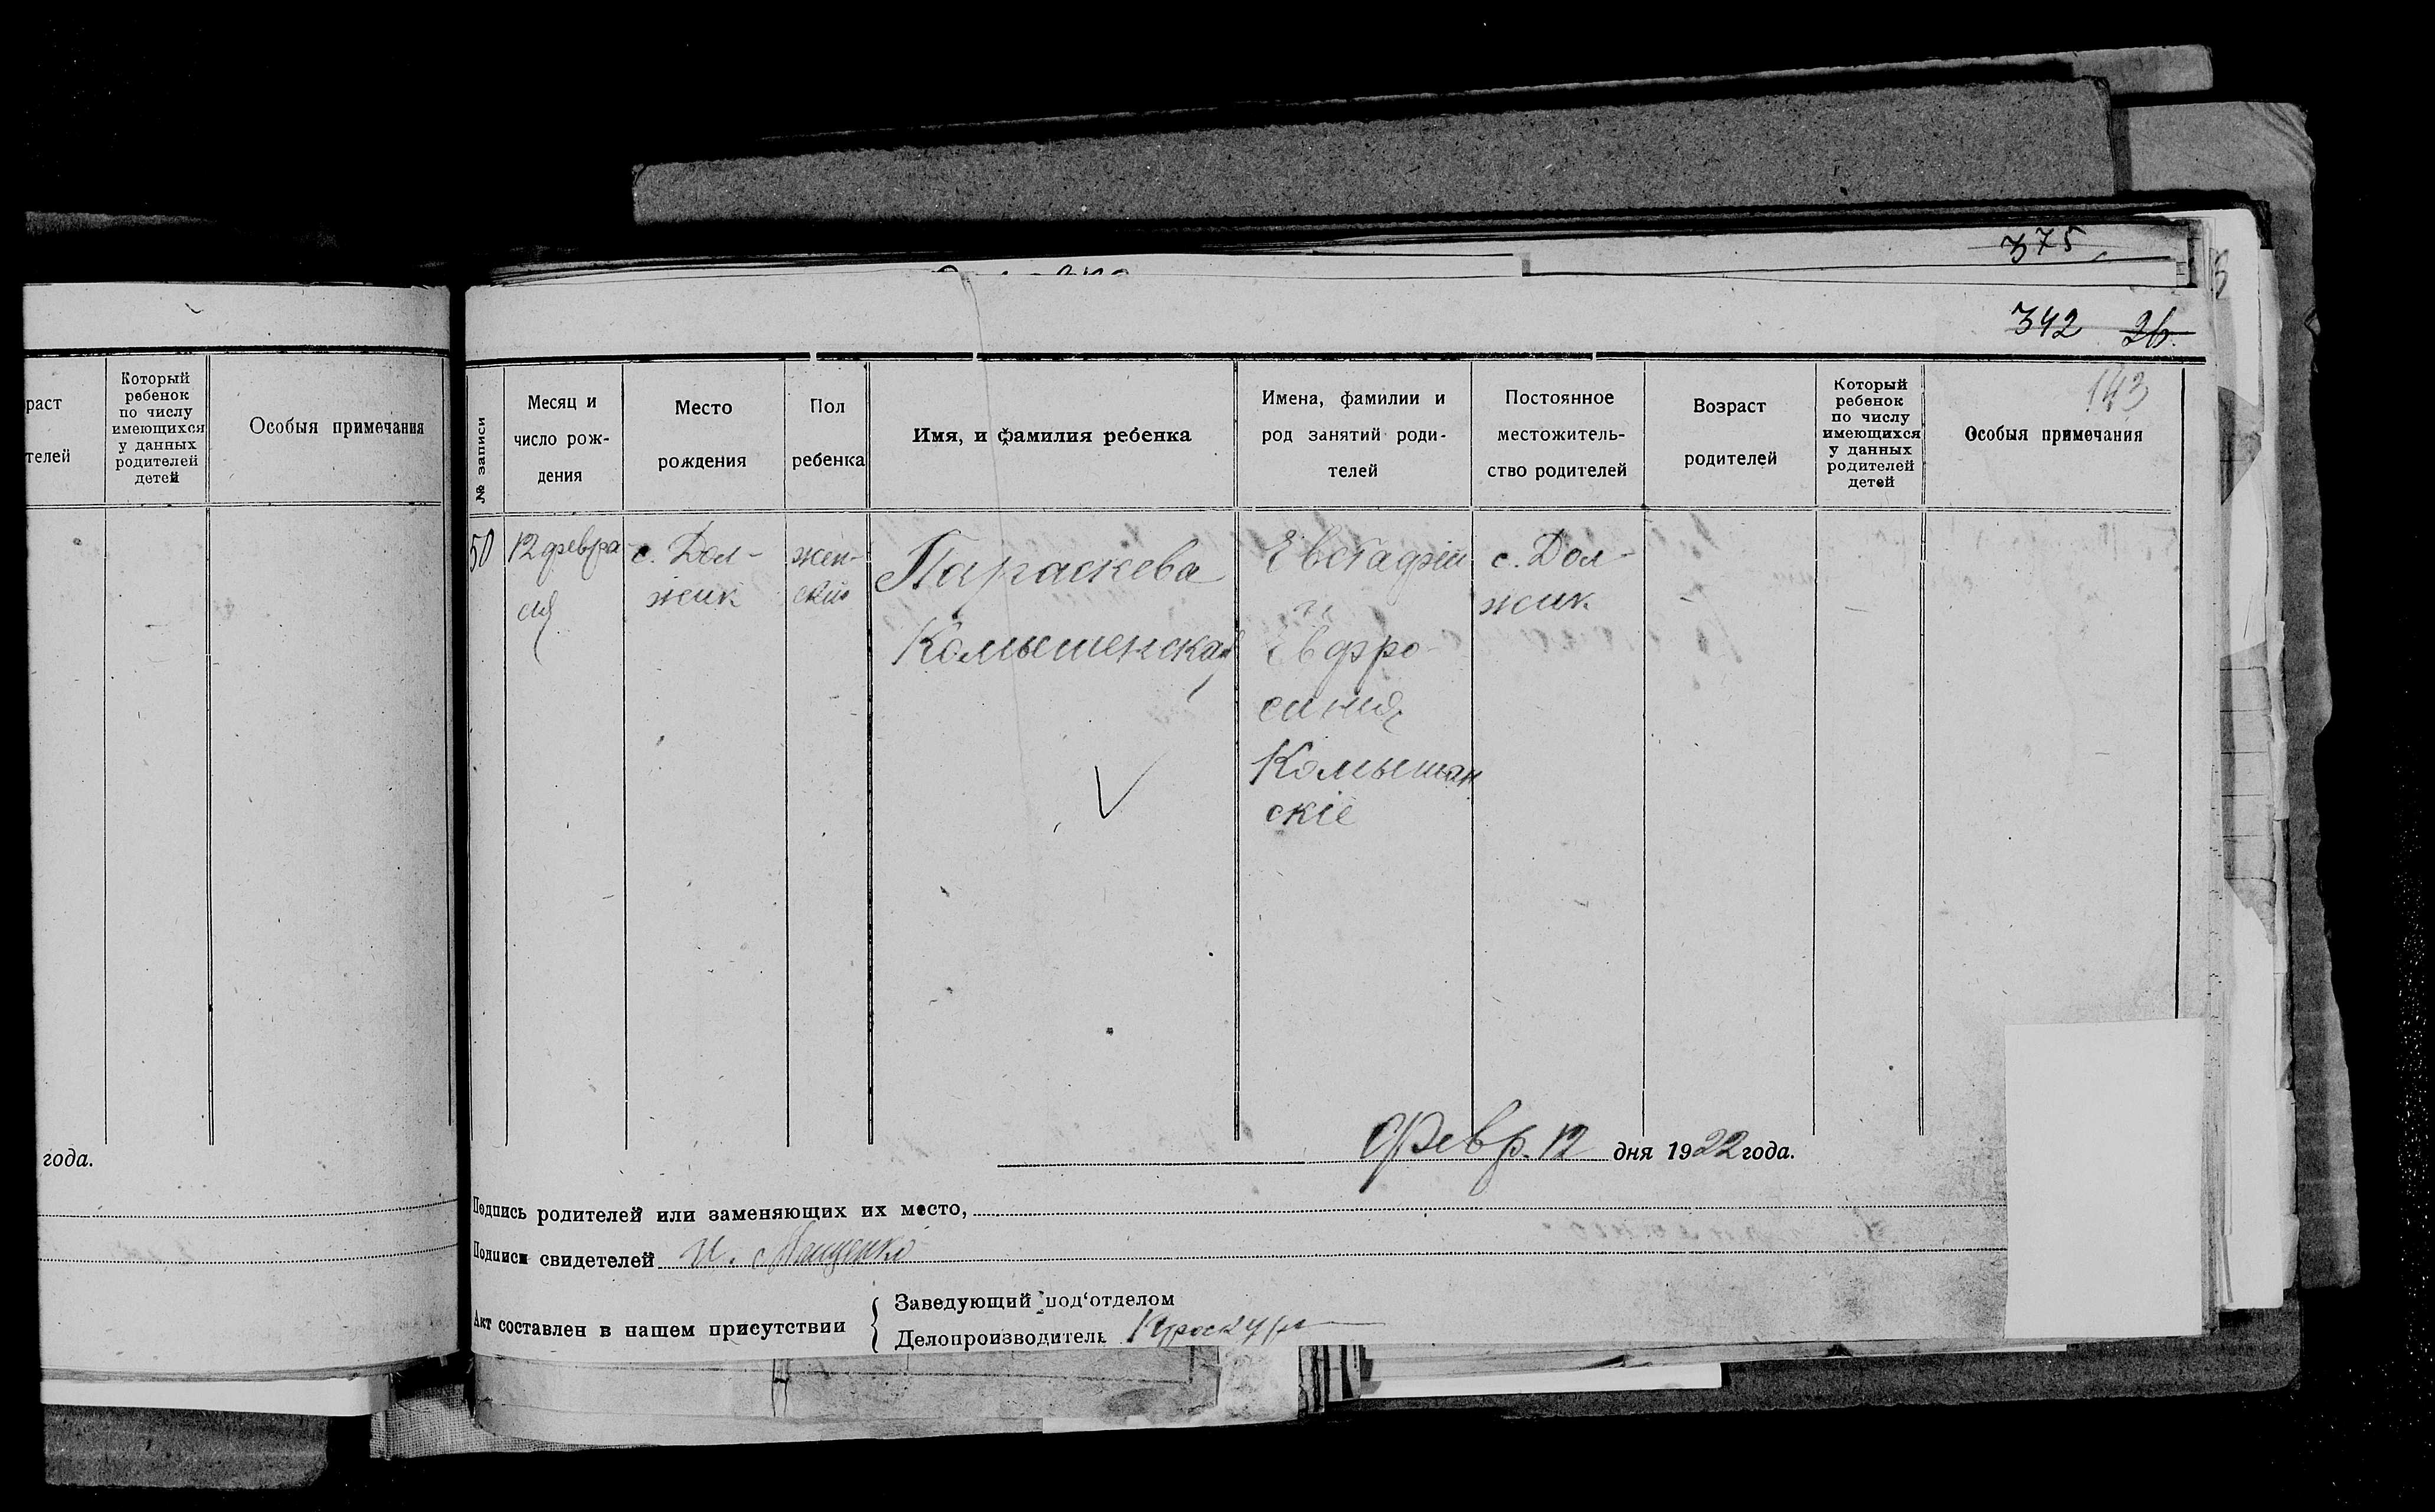 375
342 26.
143
раст
телей
Который
ребенок
по числу
имеющихся
у данных
родителей
детей
Особыя примечания
года.
№ записи
Месяц и
число рож-
дения
Место
рождения
Пол
ребенка
Имя, и фамилия ребенка
Имена, фамилии и
род занятий роди-
телей
Постоянное
местожитель-
ство родителей
Возраст
родителей
Который
ребенок
по числу
имеющихся
у данных
родителей
детей
Особыя примечания
50
12 февра-
ля
с. Дол-
жик
жен-
ский
Параскева
Комышенская
Евстафiй
и
Евфро-
синия
Комышан
скiе
с. Дол-
жик
Февр. 12 дня 1922 года.
Подпись родителей или заменяющих их место,
Подписи свидетелей И.
Акт составлен в нашем присутствии
Заведующий под'отделом
Делопроизводитель